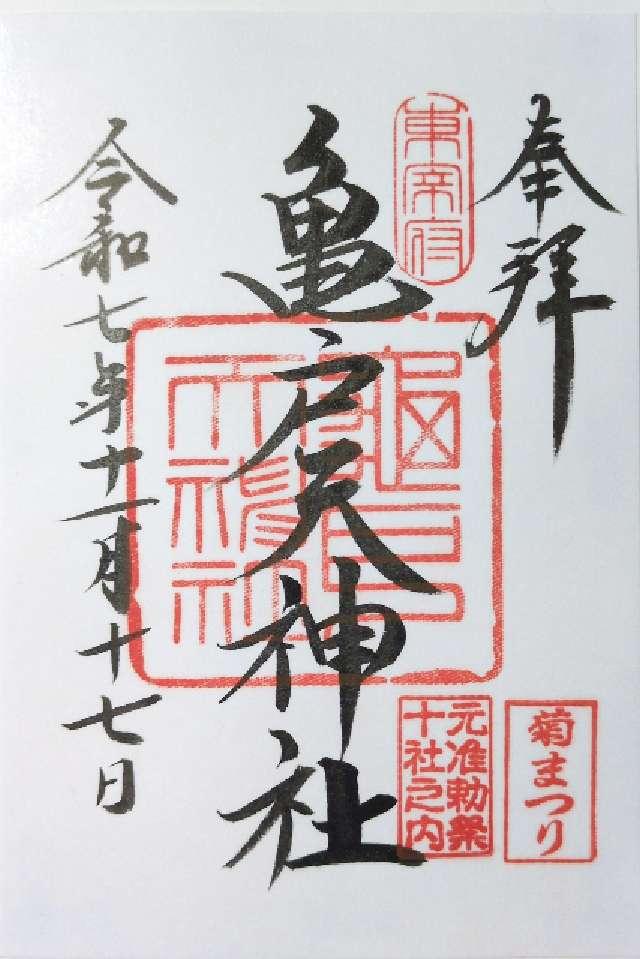 奉拝
東宰府
亀戸天神社
元准勅祭
十社之内
菊まつり
令和七年十一月十七日